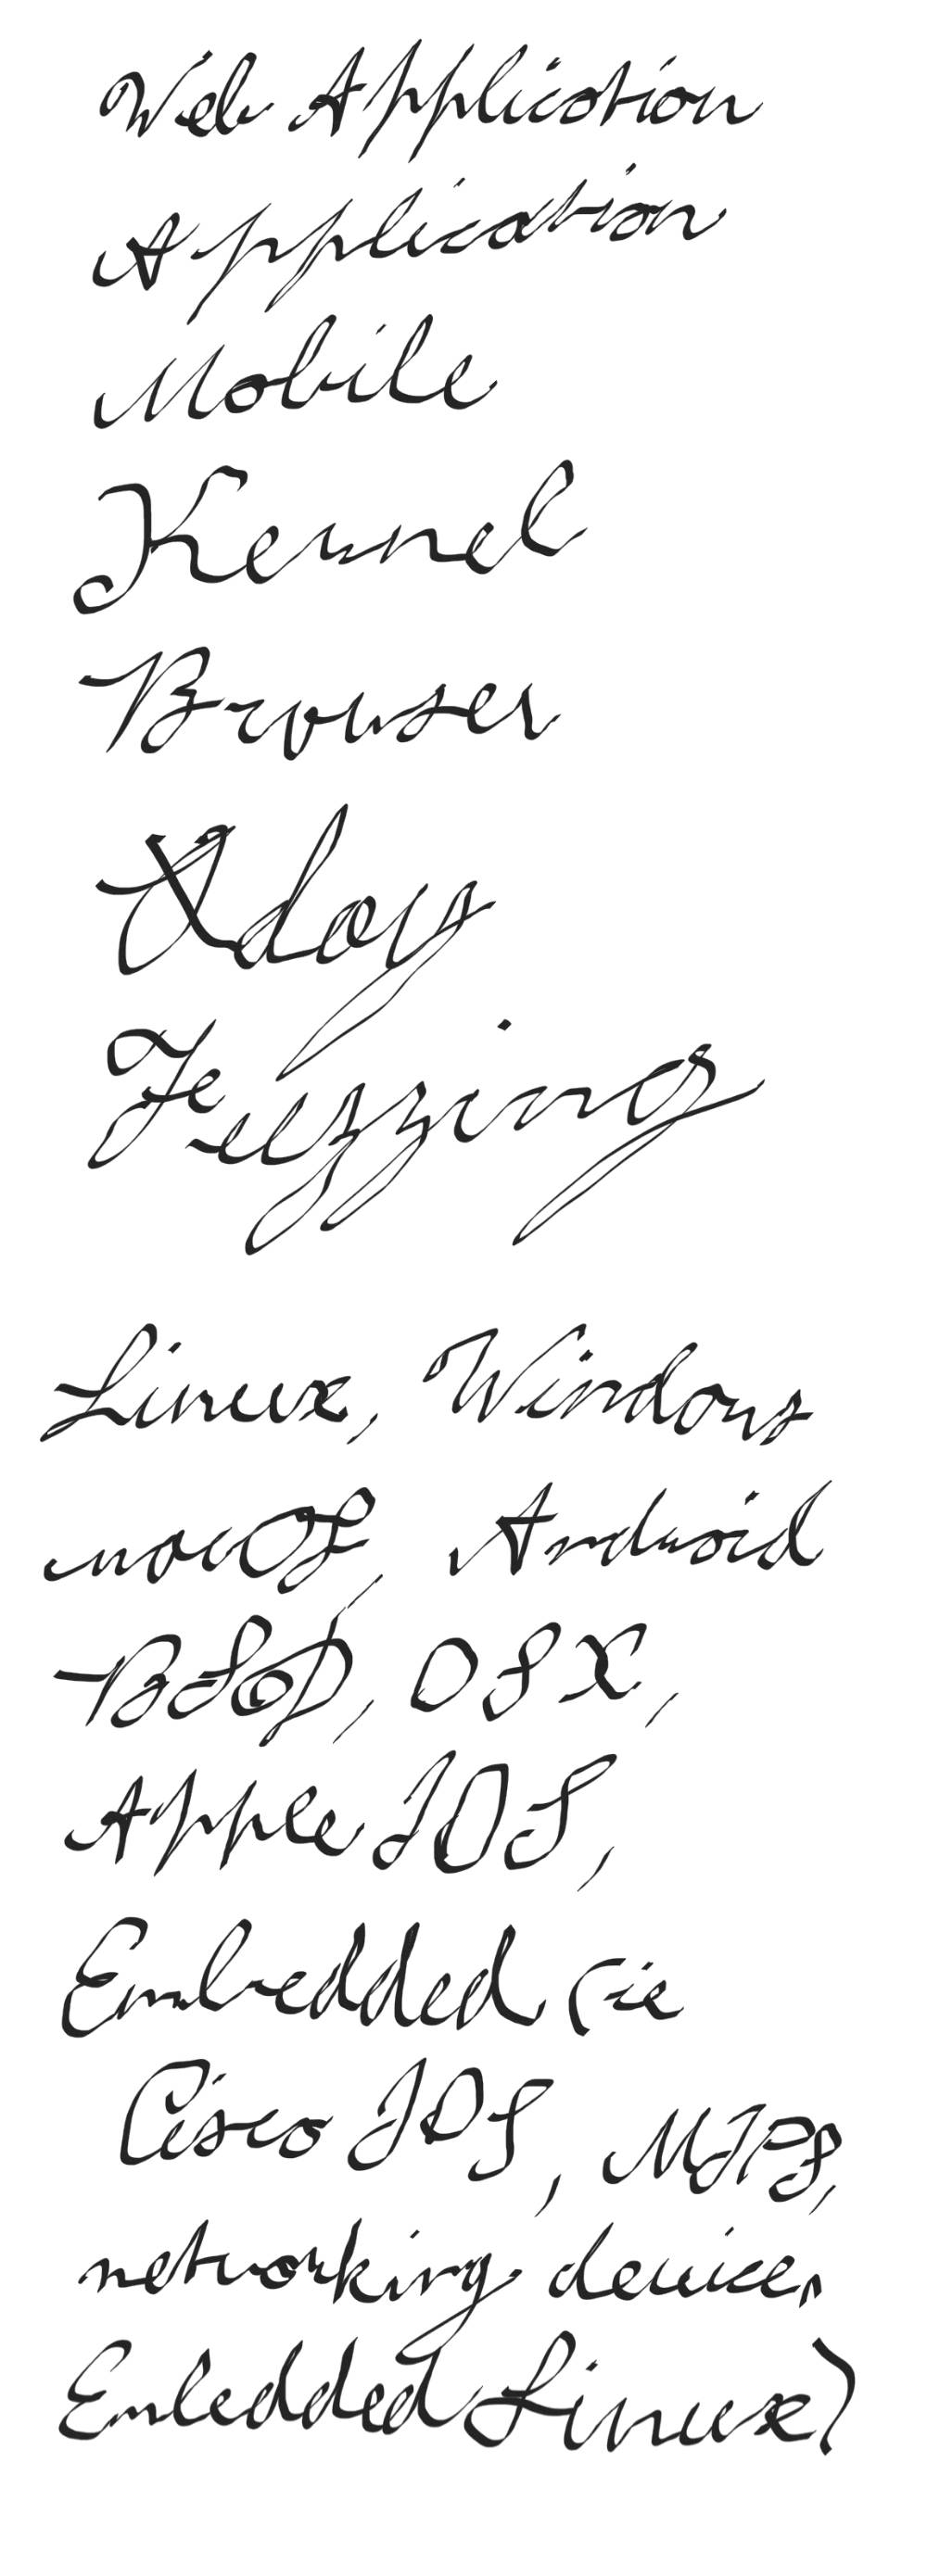 Web Application
Application
Mobile
Kernel
Browser
0day
Fuzzing
Linux, Windows
macOS, Android
BSD, OSX,
Apple IOS,
Embedded (ie
Cisco IOS, MIPS,
networking devices
Embedded Linux)